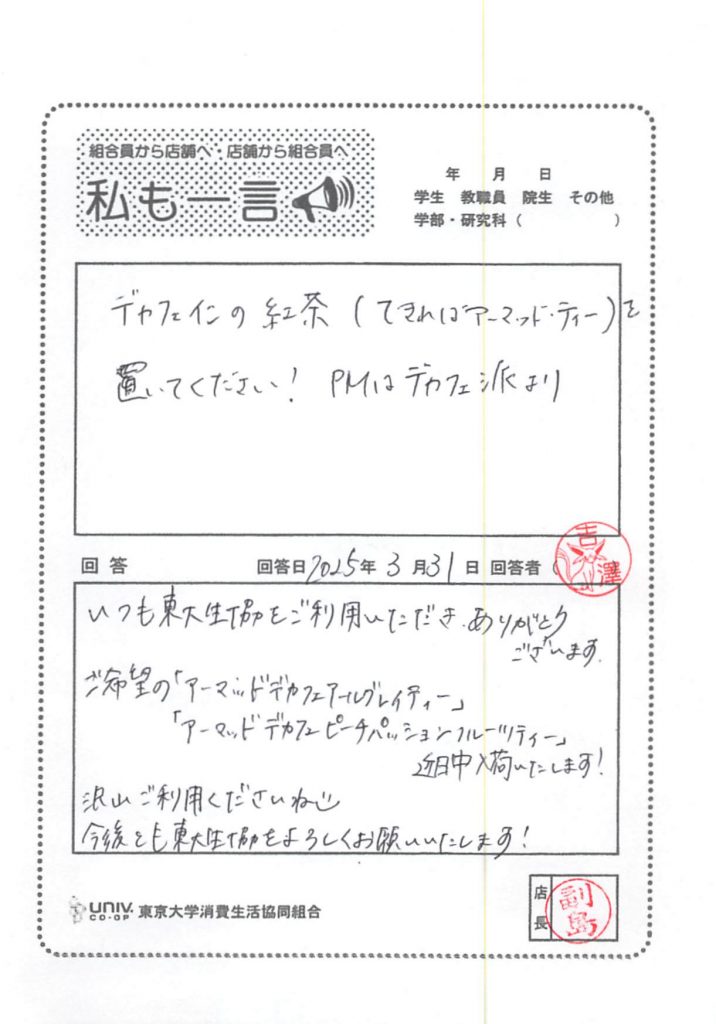 組合員から店舗へ・店舗から組合員へ
私も一言
年 月 日
学生 教職員 院生 その他
学部・研究科（ ）
デカフェインの紅茶（できればアーマッド・ティー）を
置いてください！ PMはデカフェ派より
回答 回答日 2025年 3月31日 回答者（
吉澤
いつも東大生協をご利用いただき、ありがとう
ございます。
ご希望の「アーマッドデカフェアールグレイティー」
「アーマッドデカフェピーチパッションフルーツティー」
近日中入荷いたします！
沢山ご利用くださいね
今後とも東大生協をよろしくお願いいたします！
UNIV. CO-OP 東京大学消費生活協同組合
店長
副島